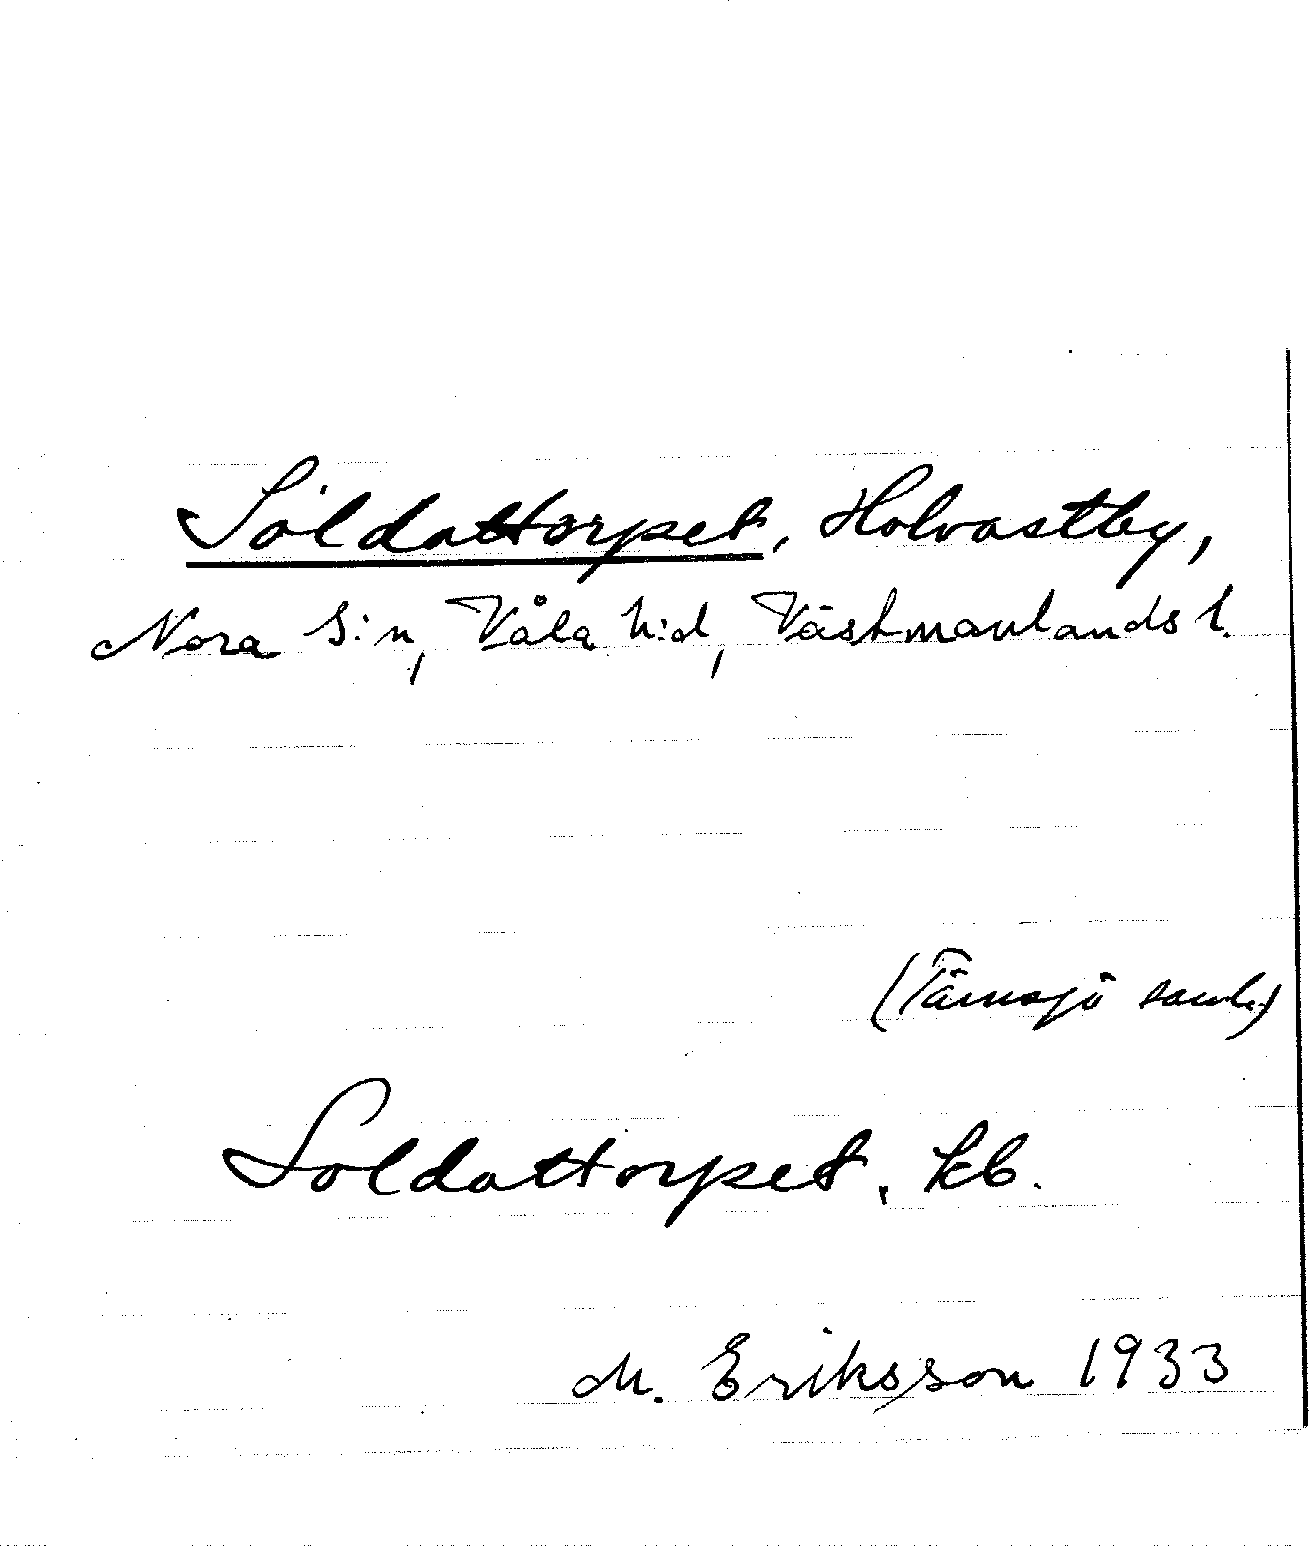 Soldattorpet, Holvastby,
Nora s:n, Våla h:d, Västmanlands l.
(Tärnsjö saml.)
Soldattorpet. kb.
M. Eriksson 1933